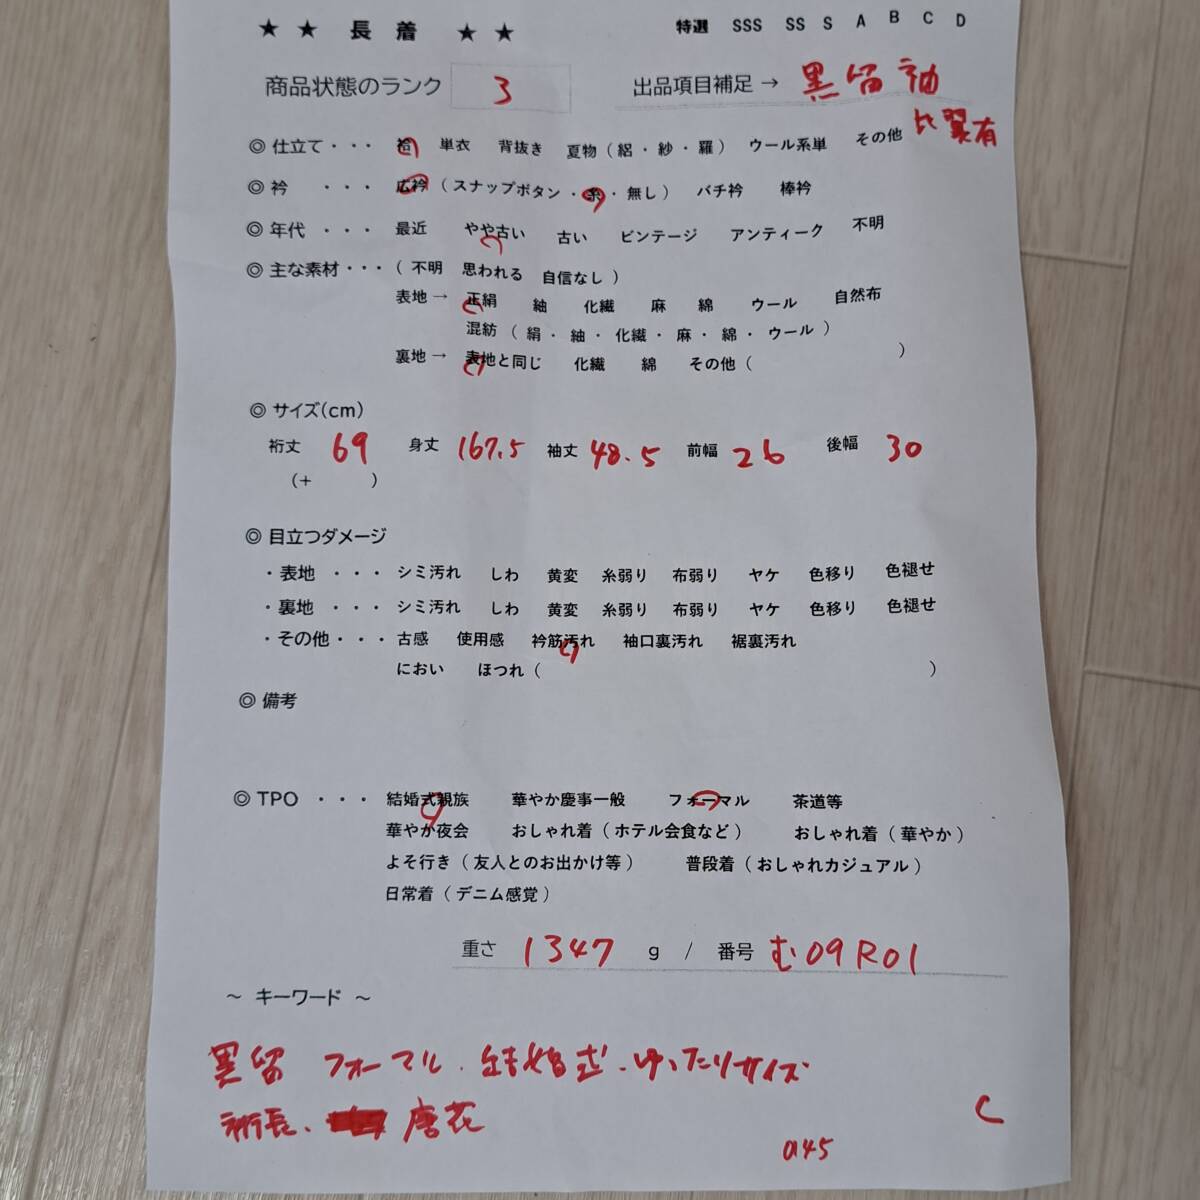 ★ ★ 長 着 ★ ★ 特選 SSS SS S A B C D
商品状態のランク 3 出品項目補足 → 黒留袖
比翼有
◎ 仕立て・・・ 袷 単衣 背抜き 夏物（絽・紗・羅） ウール系単 その他
◎ 衿 ・・・ 広衿（スナップボタン・糸・無し） バチ衿 棒衿
◎ 年代 ・・・ 最近 やや古い 古い ビンテージ アンティーク 不明
◎ 主な素材・・・（不明 思われる 自信なし）
表地 → 正絹 紬 化繊 麻 綿 ウール 自然布
混紡（絹・紬・化繊・麻・綿・ウール）
裏地 → 表地と同じ 化繊 綿 その他（ ）
◎ サイズ(cm)
裄丈 69 身丈 167.5 袖丈 48.5 前幅 26 後幅 30
（+ ）
◎ 目立つダメージ
・表地 ・・・ シミ汚れ しわ 黄変 糸弱り 布弱り ヤケ 色移り 色褪せ
・裏地 ・・・ シミ汚れ しわ 黄変 糸弱り 布弱り ヤケ 色移り 色褪せ
・その他・・・ 古感 使用感 衿筋汚れ 袖口裏汚れ 裾裏汚れ
におい ほつれ（ ）
◎ 備考
◎ TPO ・・・ 結婚式親族 華やか慶事一般 フォーマル 茶道等
華やか夜会 おしゃれ着（ホテル会食など） おしゃれ着（華やか）
よそ行き（友人とのお出かけ等） 普段着（おしゃれカジュアル）
日常着（デニム感覚）
重さ 1347 g / 番号 む09R01
～ キーワード ～
黒留 フォーマル．結婚式．ゆったりサイズ
裄長、 唐花
C
a145